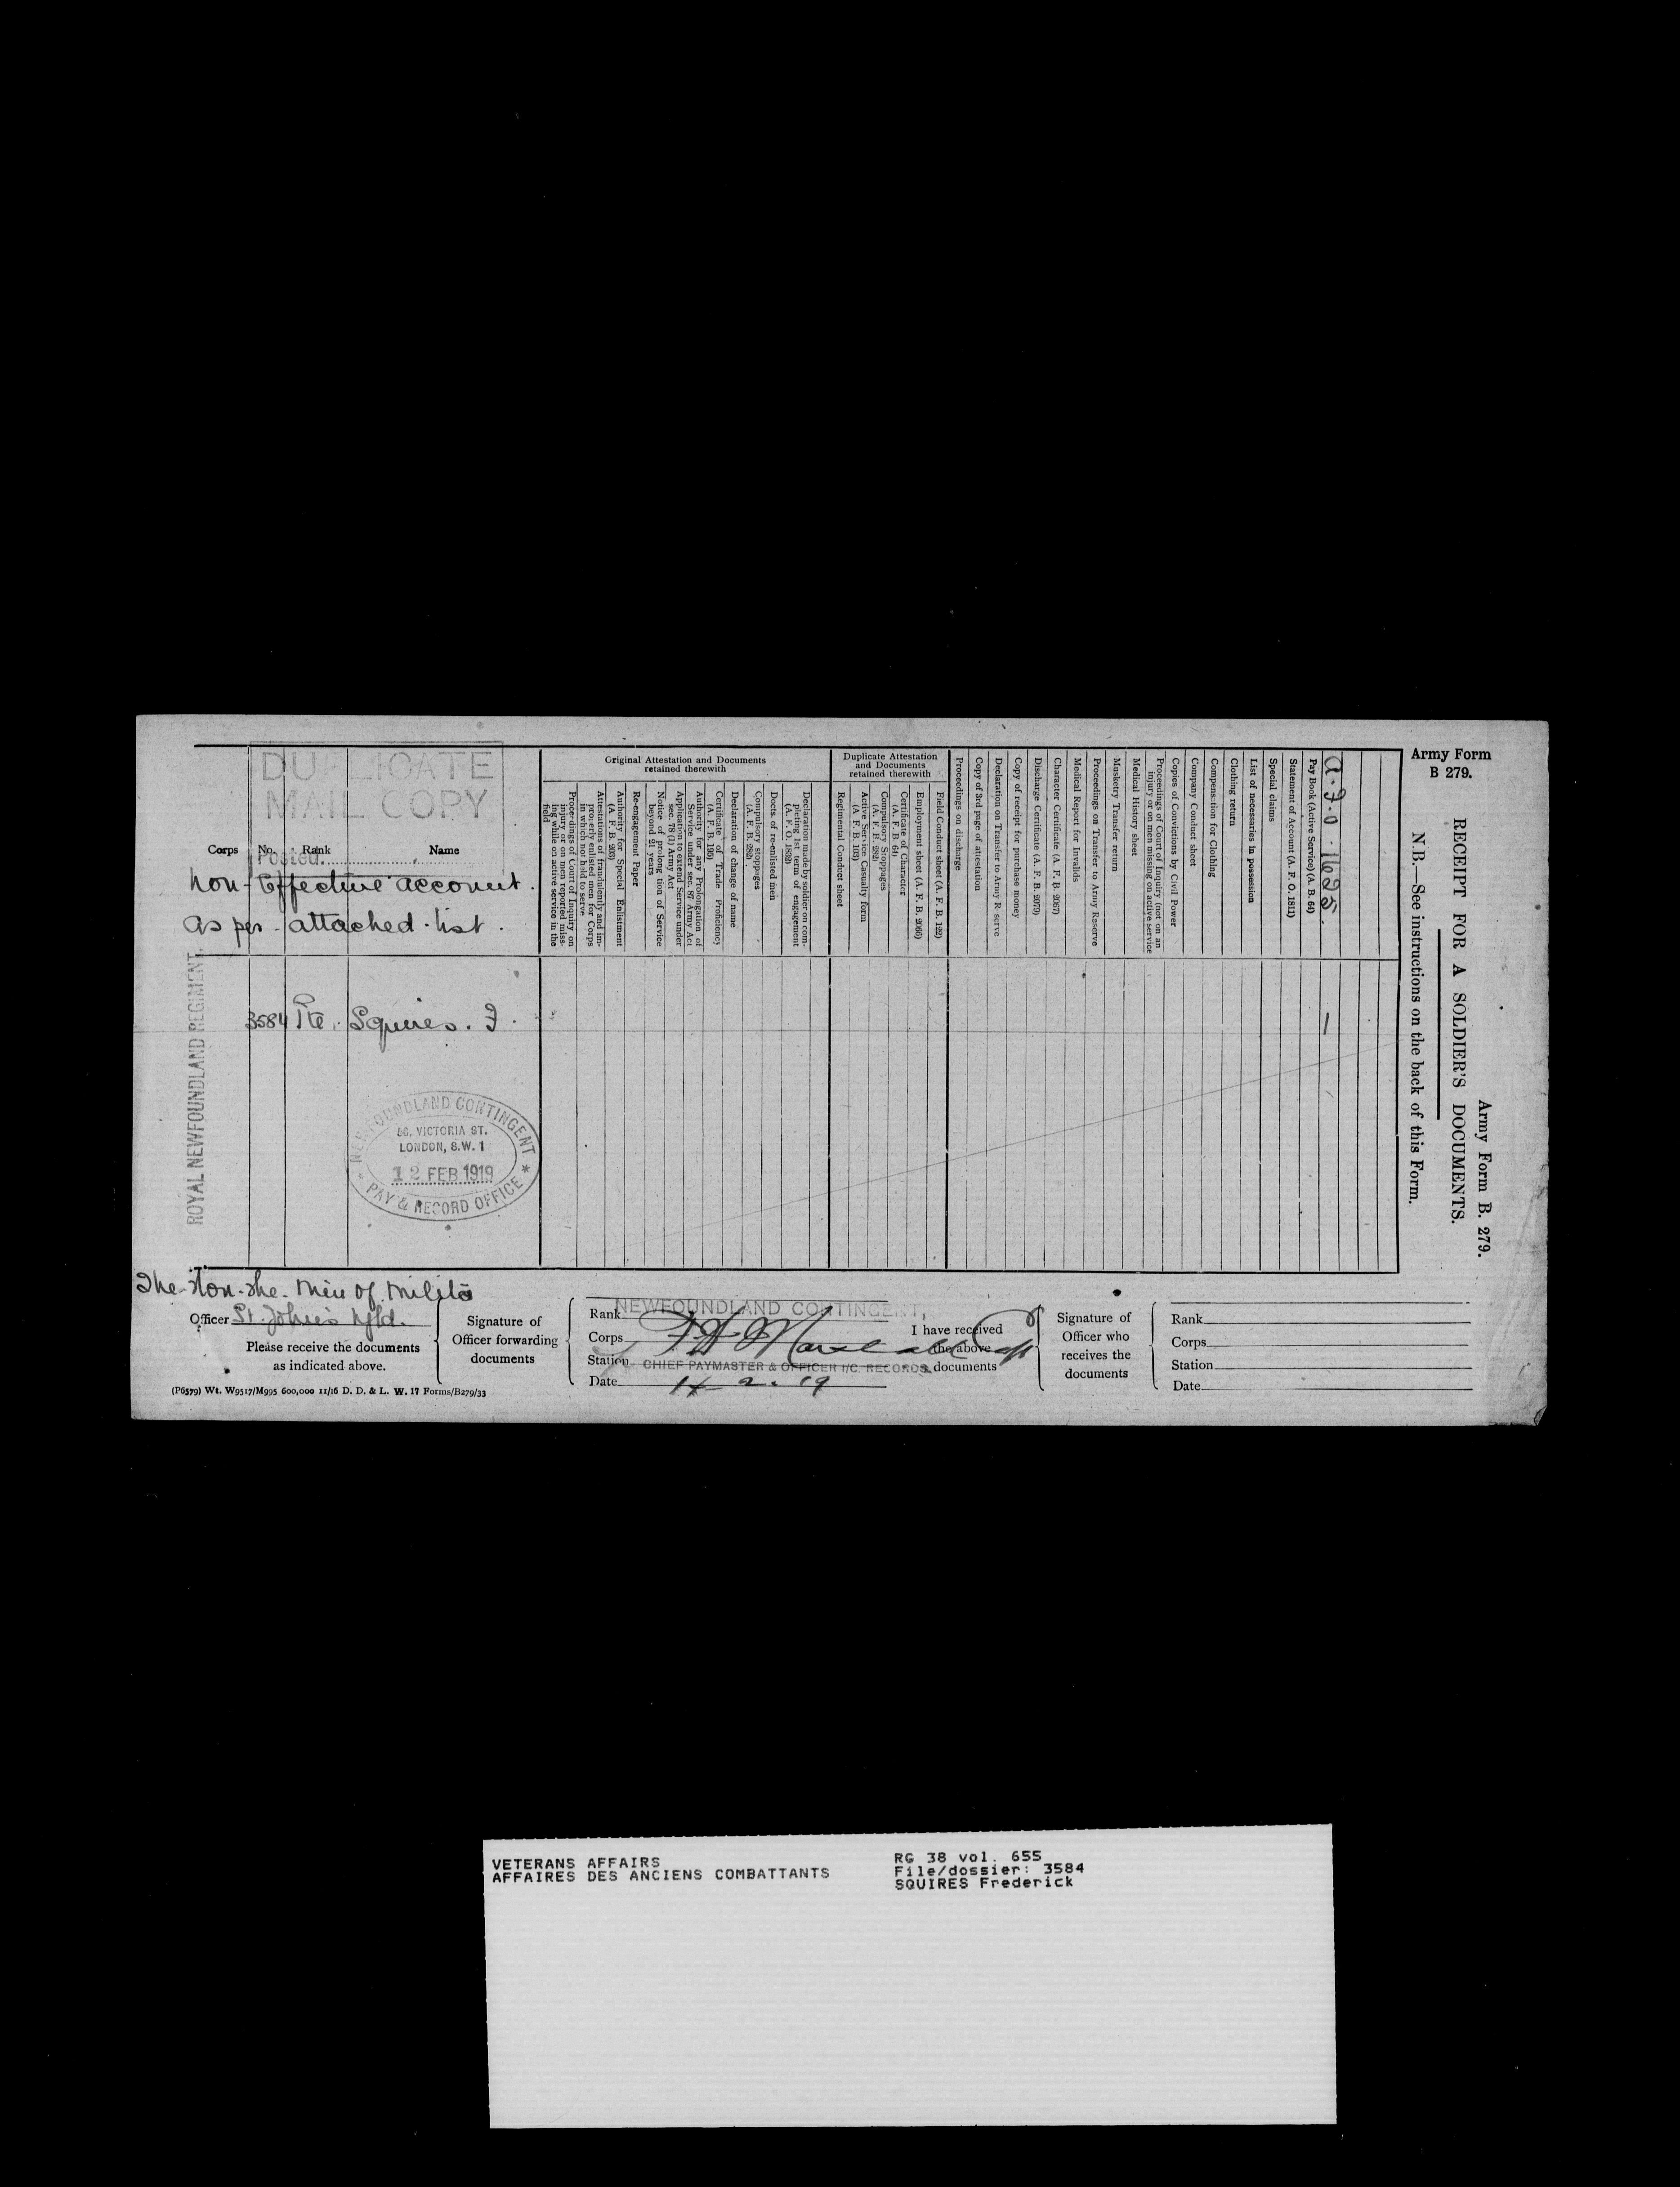 Army Form
B 279.
Army Form B. 279.
RECEIPT FOR A SOLDIER'S DOCUMENTS.
N.B.—See instructions on the back of this Form.
DUPLICATE
MAIL COPY
Posted
Corps No. Rank Name
Non-Effective account.
As per attached list.
Original Attestation and Documents
retained therewith
field
ing while on active service in the
injury or on men reported miss-
Proceedings of Court of Inquiry on
in which not held to serve
properly enlisted men for Corps
Attestations of fraudulently and im-
(A. F. B. 203)
Authority for Special Enlistment
Re-engagement Paper
beyond 21 years
Notice of prolongation of Service
sec. 78 (1) Army Act
Application to extend Service under
Service under sec. 87 Army Act
Authority for any Prolongation of
(A. F. B. 195)
Certificate of Trade Proficiency
Declaration of change of name
(A. F. B. 282)
Compulsory stoppages
Docts. of re-enlisted men
(A. F. O. 1832)
pleting 1st term of engagement
Declaration made by soldier on com-
Duplicate Attestation
and Documents
retained therewith
Regimental Conduct sheet
(A. F. B. 103)
Active Service Casualty form
(A. F. B. 282)
Compulsory Stoppages
(A. F. B. 64)
Certificate of Character
Employment sheet (A. F. B. 2066)
Field Conduct sheet (A. F. B. 122)
Proceedings on discharge
Copy of 3rd page of attestation
Declaration on Transfer to Army Reserve
Copy of receipt for purchase money
Discharge Certificate (A. F. B. 2079)
Character Certificate (A. F. B. 2067)
Medical Report for Invalids
Proceedings on Transfer to Army Reserve
Musketry Transfer return
Medical History sheet
injury or on men missing on active service
Proceedings of Court of Inquiry (not on an
Copies of Convictions by Civil Power
Company Conduct sheet
Compensation for Clothing
Clothing return
List of necessaries in possession
Special claims
Statement of Account (A. F. O. 1811)
Pay Book (Active Service) (A. B. 64)
A.F.O. 1625.
ROYAL NEWFOUNDLAND REGIMENT
3584 Pte. Squires. F. 1
NEWFOUNDLAND CONTINGENT
58, VICTORIA ST.
LONDON, S.W. 1
12 FEB 1919
* PAY & RECORD OFFICE *
The Hon. the Min of Militia
Officer St. John's Nfld.
Please receive the documents
as indicated above.
Signature of
Officer forwarding
documents
NEWFOUNDLAND CONTINGENT,
Rank
Corps
Station CHIEF PAYMASTER & OFFICER I/C. RECORDS.
Date 14 2. 19
I have received
the above
documents
Signature of
Officer who
receives the
documents
Rank
Corps
Station
Date
(P6579) Wt. W9517/M995 600,000 11/16 D. D. & L. W. 17 Forms/B279/33
VETERANS AFFAIRS
AFFAIRES DES ANCIENS COMBATTANTS
RG 38 vol. 655
File/dossier: 3584
SQUIRES Frederick